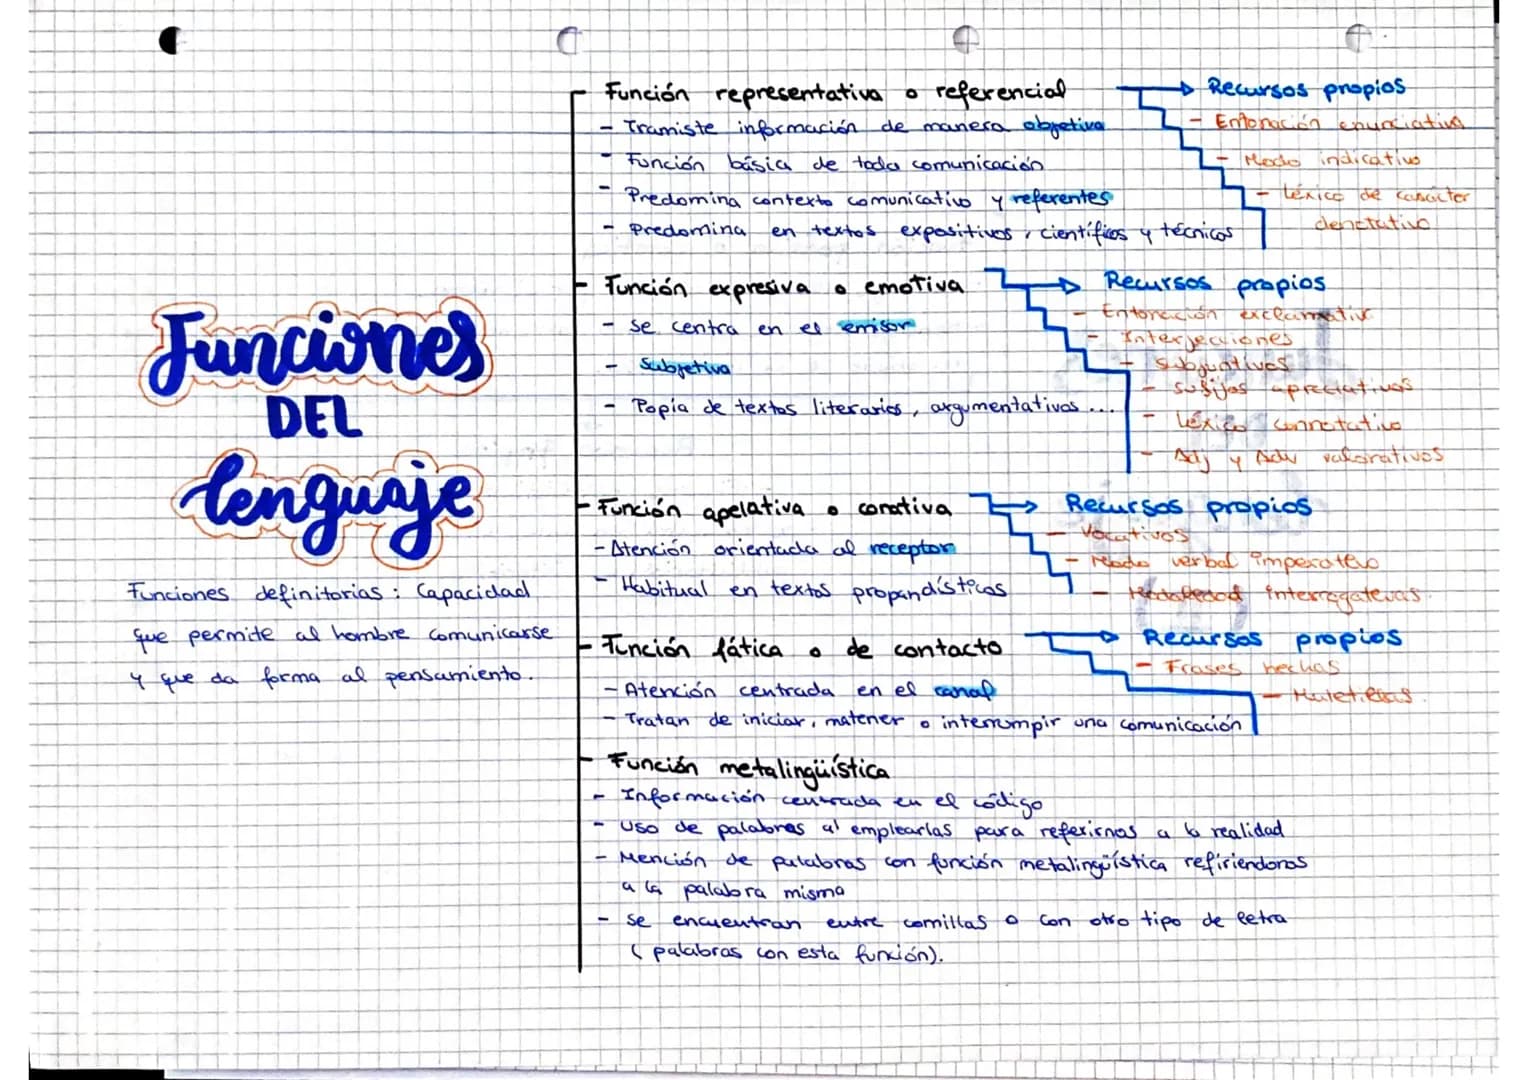 Funciones
DEL
lenguaje
Funciones definitorias : Capacidad
que permite al hombre comunicarse
y que da forma al pensamiento.
Función representativa o referencial
- Tramiste información de manera objetiva
- Función básica de toda comunicación
- Predomina contexto comunicativo y referentes
- Predomina en textos expositivos, científicos y técnicos
Recursos propios
- Entonación enunciativa
- Modo indicativo
- Léxico de carácter
denotativo
Función expresiva o emotiva
- Se centra en el emisor
- Subjetiva
- Popia de textos literarios, argumentativos ...
Recursos propios
- Entonación exclamativa
- Interjecciones
- Subjuntivos
- Sufijos apreciativos
- Léxico connotativo
- Adj y Adv valorativos
Función apelativa o conativa
- Atención orientada al receptor
- Habitual en textos propandísticos
Recursos propios
- Vocativos
- Modo verbal imperativo
- Modalidad interrogatevas.
Función fática o de contacto
- Atención centrada en el canal
- Tratan de iniciar, matener o interrumpir una comunicación
Recursos propios
- Frases hechas
- Muletillas.
Función metalingüística
- Información centrada en el código
- Uso de palabras al emplearlas para referirnos a la realidad
- Mención de palabras con función metalingüística refiriendonos
a la palabra misma
- Se encuentran entre comillas o con otro tipo de letra
( palabras con esta función).